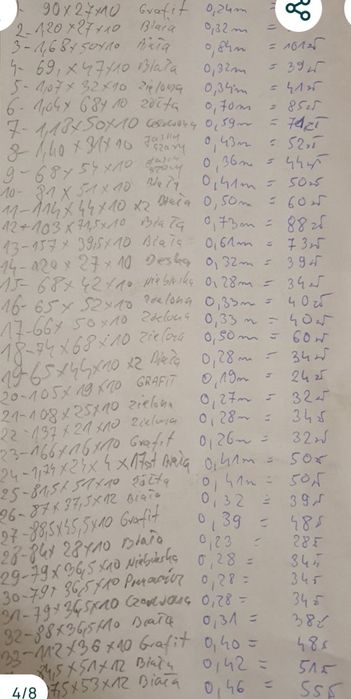 90x27x10 Grafit 0,24m =
2-120x27x10 Biała 0,32m =
3-1,68x50x10 Biała 0,84m = 101zł
4-69,x47x10 Biała 0,32m = 39zł
5-1,07x32x10 zielona 0,34m = 41zł
6-1,04x68x10 żółta 0,70m = 85zł
7-1,18x50x10 czerwona 0,59m = 71zł
8-1,40x31x10 Jasny szary 0,43m = 52zł
9-68x54x10 Jasny szary 0,36m = 44zł
10-81x51x10 Biały 0,41m = 50zł
11-114x44x10 x2 Biała 0,50m = 60zł
12+103x71,5x10 Biała 0,73m = 88zł
13-157x39,5x10 Biała 0,61m = 73zł
14-120x27x10 Deska 0,32m = 39zł
15-68x42x10 niebieska 0,28m = 34zł
16-65x52x10 zielona 0,33m = 40zł
17-66x50x10 zielona 0,33m = 40zł
18-74x68x10 zielona 0,50m = 60zł
19-65x44x10 x2 Biała 0,28m = 34zł
20-105x19x10 GRAFIT 0,19m = 24zł
21-108x25x10 zielona 0,27m = 32zł
22-137x21x10 zielona 0,28m = 34zł
23-166x16x10 Grafit 0,26m = 32zł
24-1,74x24x4 Biała 0,41m = 50zł
25-81,5x51x10 żółta 0,41m = 50zł
26-87x37,5x12 Biała 0,32 = 39zł
27-88,5x45,5x10 Grafit 0,39 = 48zł
28-84x28x10 Biała 0,23 = 28zł
29-79x36,5x10 Niebieska 0,28 = 34zł
30-79x36,5x10 0,28 = 34zł
31-79x36,5x10 Czerwona 0,28 = 34zł
32-88x36,5x10 Biała 0,31 = 38zł
33-112x36x10 Grafit 0,40 = 48zł
x51x12 Biała 0,42 = 51zł
x53x12 Biała 0,46 = 55zł
4/8